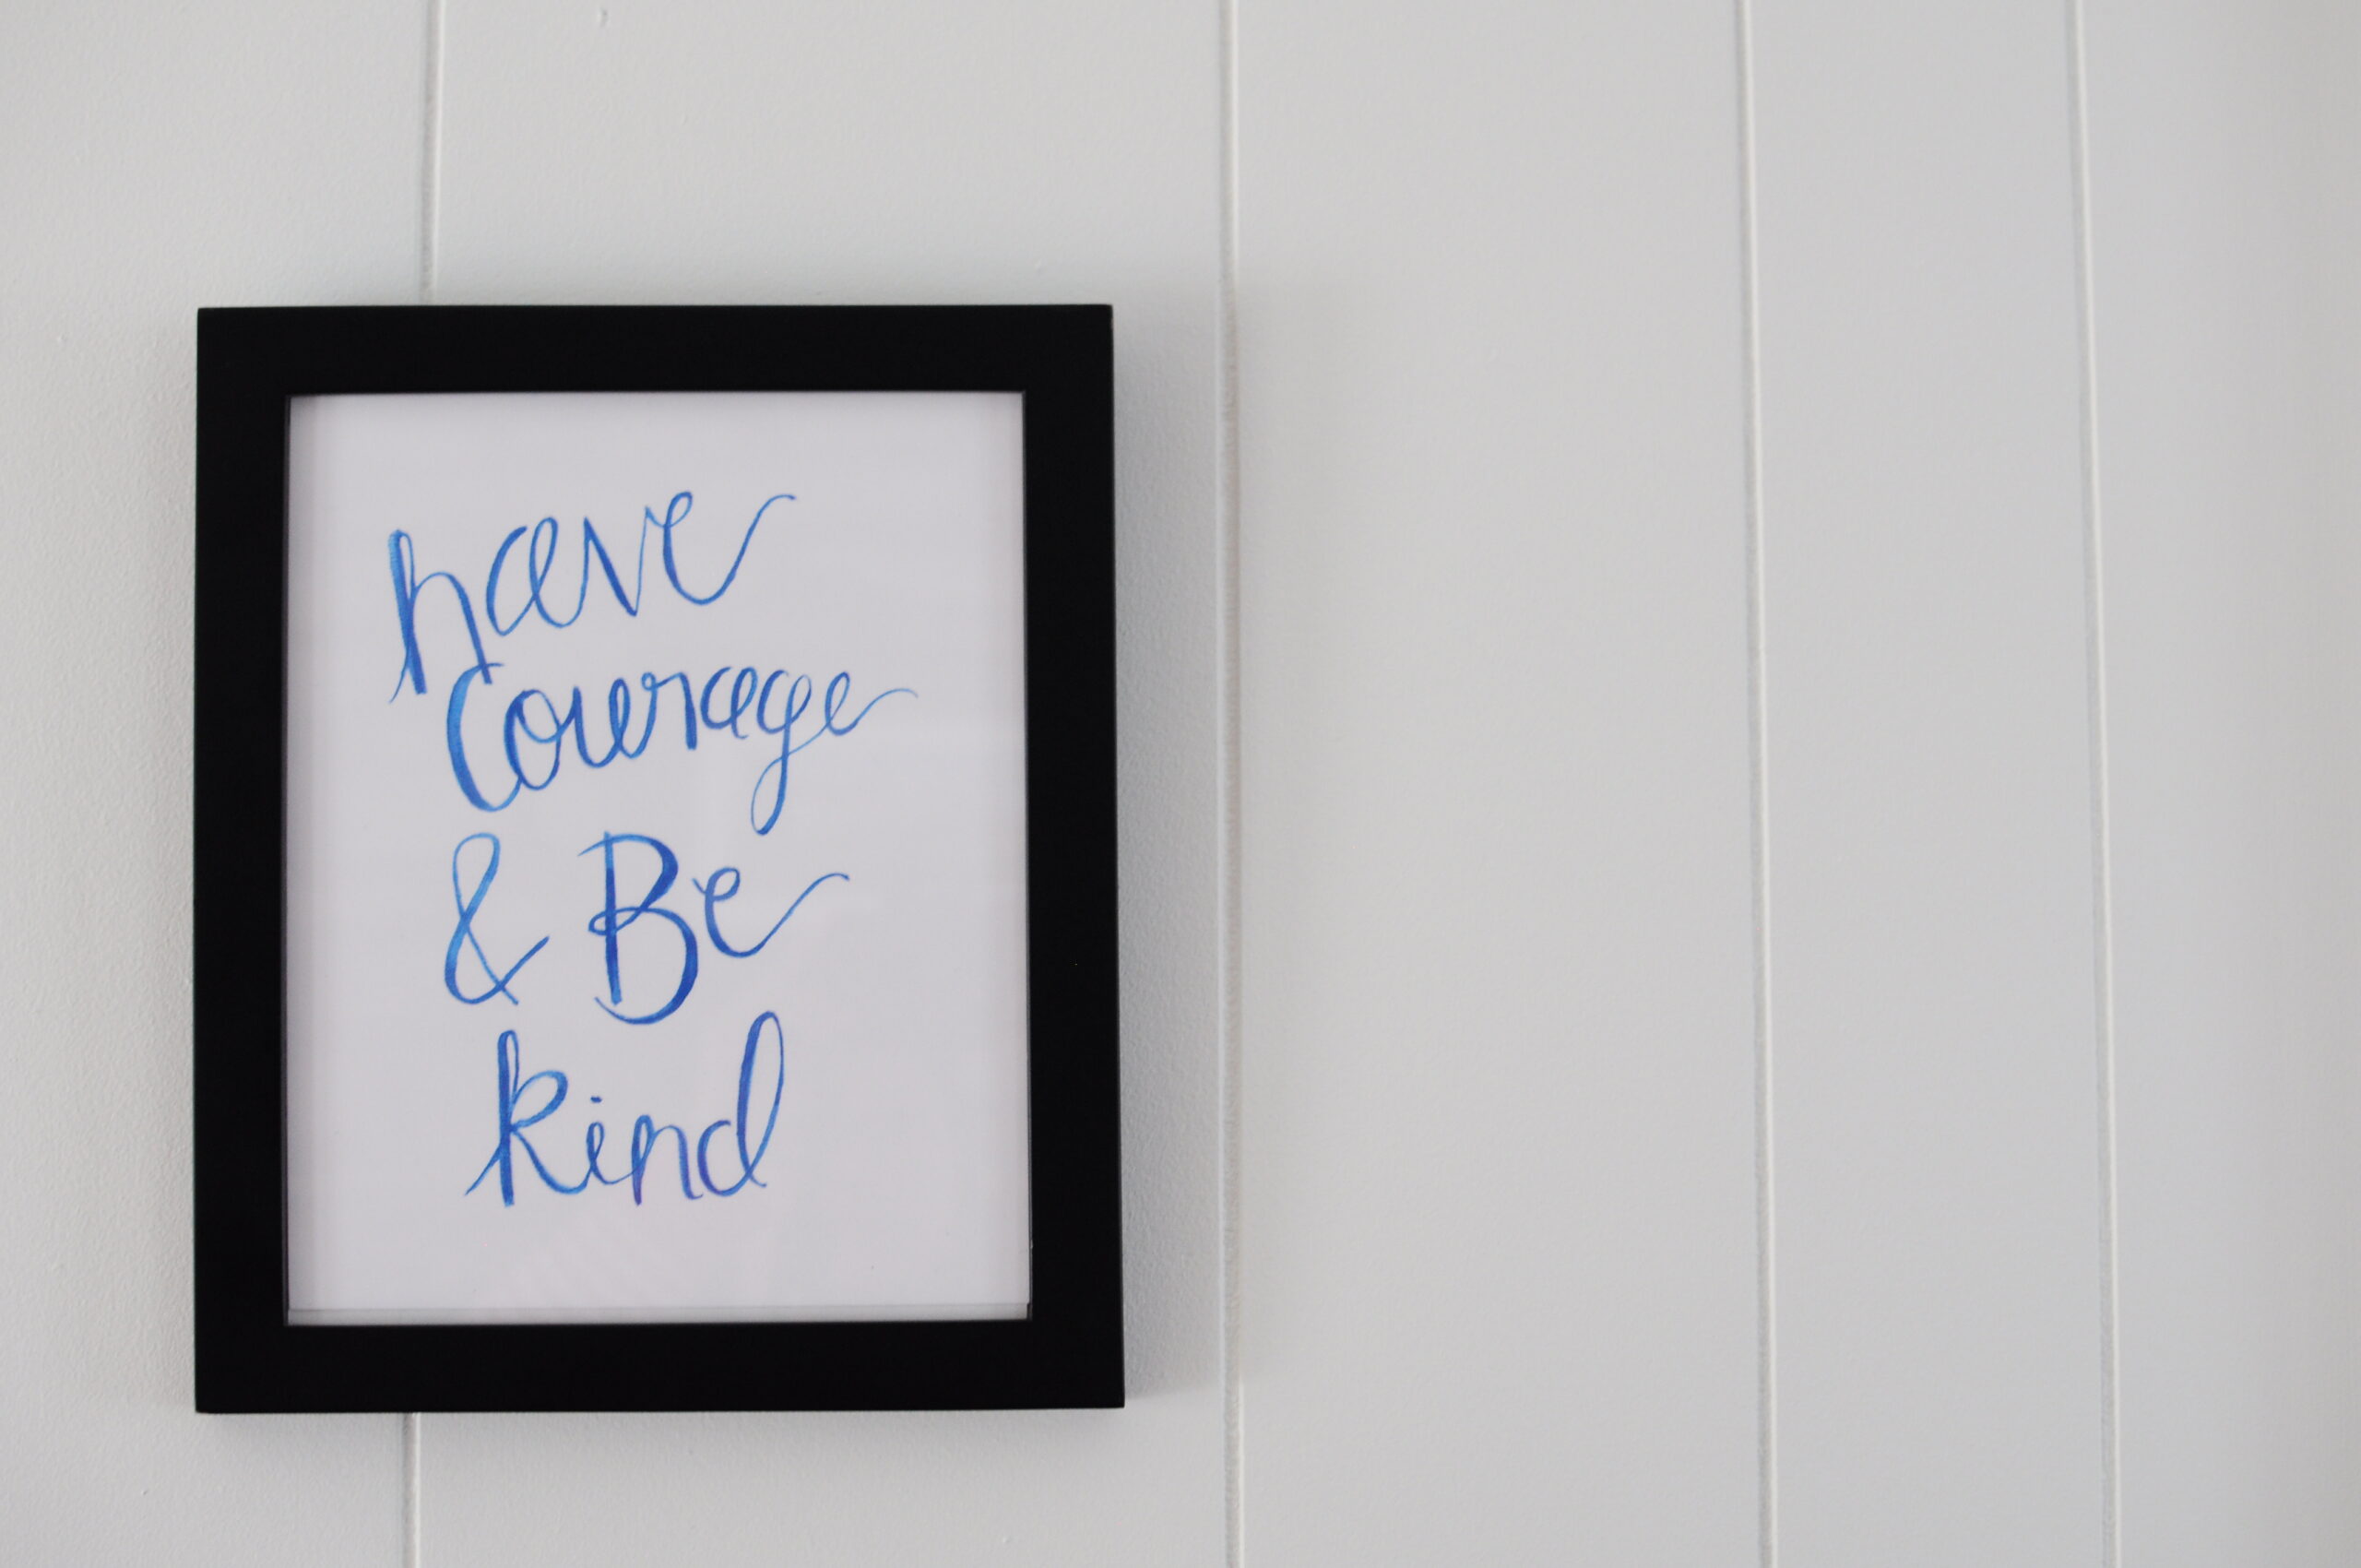 have
Courage
& Be
kind